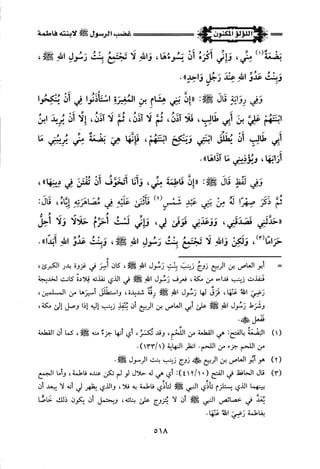 اللؤلؤ المكنون
غضب الرسول ﷺ لابنته فاطمة
بَضْعَةٌ(١) مِنِّي، وَإِنِّي أَكْرَهُ أَنْ يَسُوءَهَا، وَاللهِ لَا تَجْتَمِعُ بِنْتُ رَسُولِ اللهِ ﷺ،
وَبِنْتُ عَدُوِّ اللهِ عِنْدَ رَجُلٍ وَاحِدٍ».
وَفِي رِوَايَةٍ قَالَ ﷺ: «إِنَّ بَنِي هِشَامِ بنِ المُغِيرَةِ اسْتَأْذَنُوا فِي أَنْ يُنْكِحُوا
ابْنَتَهُمْ عَلِيَّ بنَ أَبِي طَالِبٍ، فَلَا آذَنُ، ثُمَّ لَا آذَنُ، ثُمَّ لَا آذَنُ، إِلَّا أَنْ يُرِيدَ ابنُ
أَبِي طَالِبٍ أَنْ يُطَلِّقَ ابْنَتِي وَيَنْكِحَ ابْنَتَهُمْ، فَإِنَّهَا هِيَ بَضْعَةٌ مِنِّي يُرِيبُنِي مَا
أَرَابَهَا، وَيُؤْذِينِي مَا آذَاهَا».
وَفِي لَفْظٍ قَالَ ﷺ: «إِنَّ فَاطِمَةَ مِنِّي، وَأَنَا أَتَخَوَّفُ أَنْ تُفْتَنَ فِي دِينِهَا»،
ثُمَّ ذَكَرَ صِهْرًا لَهُ مِنْ بَنِي عَبْدِ شَمْسٍ(٢) فَأَثْنَى عَلَيْهِ فِي مُصَاهَرَتِهِ إِيَّاهُ، قَالَ:
«حَدَّثَنِي فَصَدَقَنِي، وَوَعَدَنِي فَوَفَى لِي، وَإِنِّي لَسْتُ أُحَرِّمُ حَلَالًا وَلَا أُحِلُّ
حَرَامًا(٣)، وَلَكِنْ وَاللهِ لَا تَجْتَمِعُ بِنْتُ رَسُولِ اللهِ ﷺ، وَبِنْتُ عَدُوِّ اللهِ أَبَدًا».
= أبو العاص بن الربيع زوجُ زينب بِنْتِ رَسُولِ اللهِ ﷺ، كان أُسِرَ في غزوة بدر الكبرى،
ففدت زينب فداءه من مكة، فعرف رَسُول اللهِ ﷺ في الذي نفذته قِلادةً كانت لخديجة
رَضِيَ اللهُ عَنْهَا، فَرَقَّ لها رَسُول اللهِ ﷺ رِقَّةً شديدة، واستطلق أسيرها من المسلمين،
وشرط رَسُول اللهِ ﷺ على أبي العاص بن الربيع أن يُنْفِذَ زينب إليه إذا وصل إلى مكة،
ففعل
(١) البَضْعَةُ بالفتح: هي القطعة من اللَّحم، وقد تُكْسَر، أي أنها جزء منه ﷺ، كما أن القطعة
من اللحم جزء من اللحم. انظر النهاية (١/١٣٣).
(٢) هو أبو العاص بن الربيع زوج زينب بنت الرسول ﷺ.
(٣) قال الحافظ في الفتح (١٠/٤١٢): أي هي له حلال لو لم تكن عنده فاطمة، وأما الجمع
بينهما الذي يستلزم تأذي النبي ﷺ لتأذي فاطمة به فلا، والذي يظهر لي أنه لا يبعد أن
يُعَدَّ في خصائص النبي ﷺ أن لا يُتزوج على بناته، ويحتمل أن يكون ذلك خاصًّا
بفاطمة رَضِيَ اللهُ عَنْهَا.
٥١٨